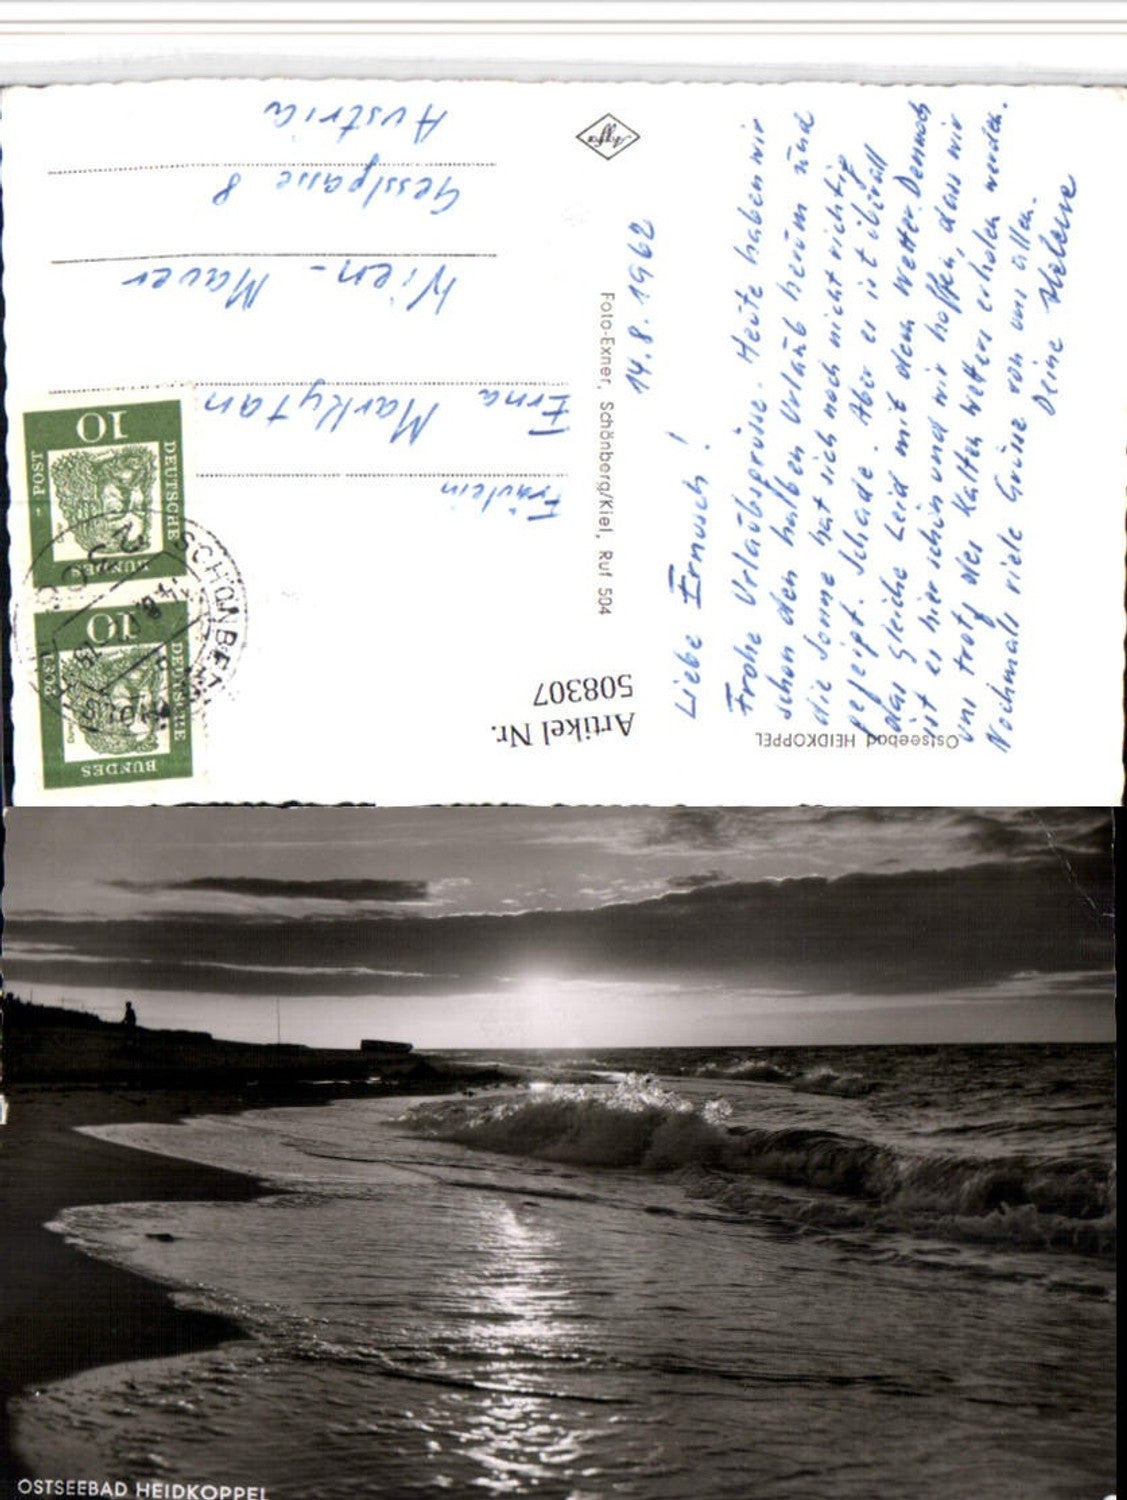 14.8.1962
Liebe Ernusch!
Frohe Urlaubsgrüsse. Heute haben wir
schon den halben Urlaub herum und
die Sonne hat sich noch nicht richtig
gezeigt. Schade. Aber es ist überall
das Gleiche Leid mit dem Wetter. Dennoch
ist es hier schön und wir hoffen, dass wir
uns trotz des Kalten Wetters erholen werden.
Nochmals viele Grüsse von uns allen.
Deine Helene
Ostseebad HEIDKOPPEL
Foto-Exner, Schönberg/Kiel, Ruf 504
Agfa
Artikel Nr.
508307
Fräulein
Erna Markytan
Wien - Mauer
Gesslgasse 8
Austria
DEUTSCHE
BUNDES
POST
10
DEUTSCHE
BUNDES
POST
10
OSTSEEBAD HEIDKOPPEL